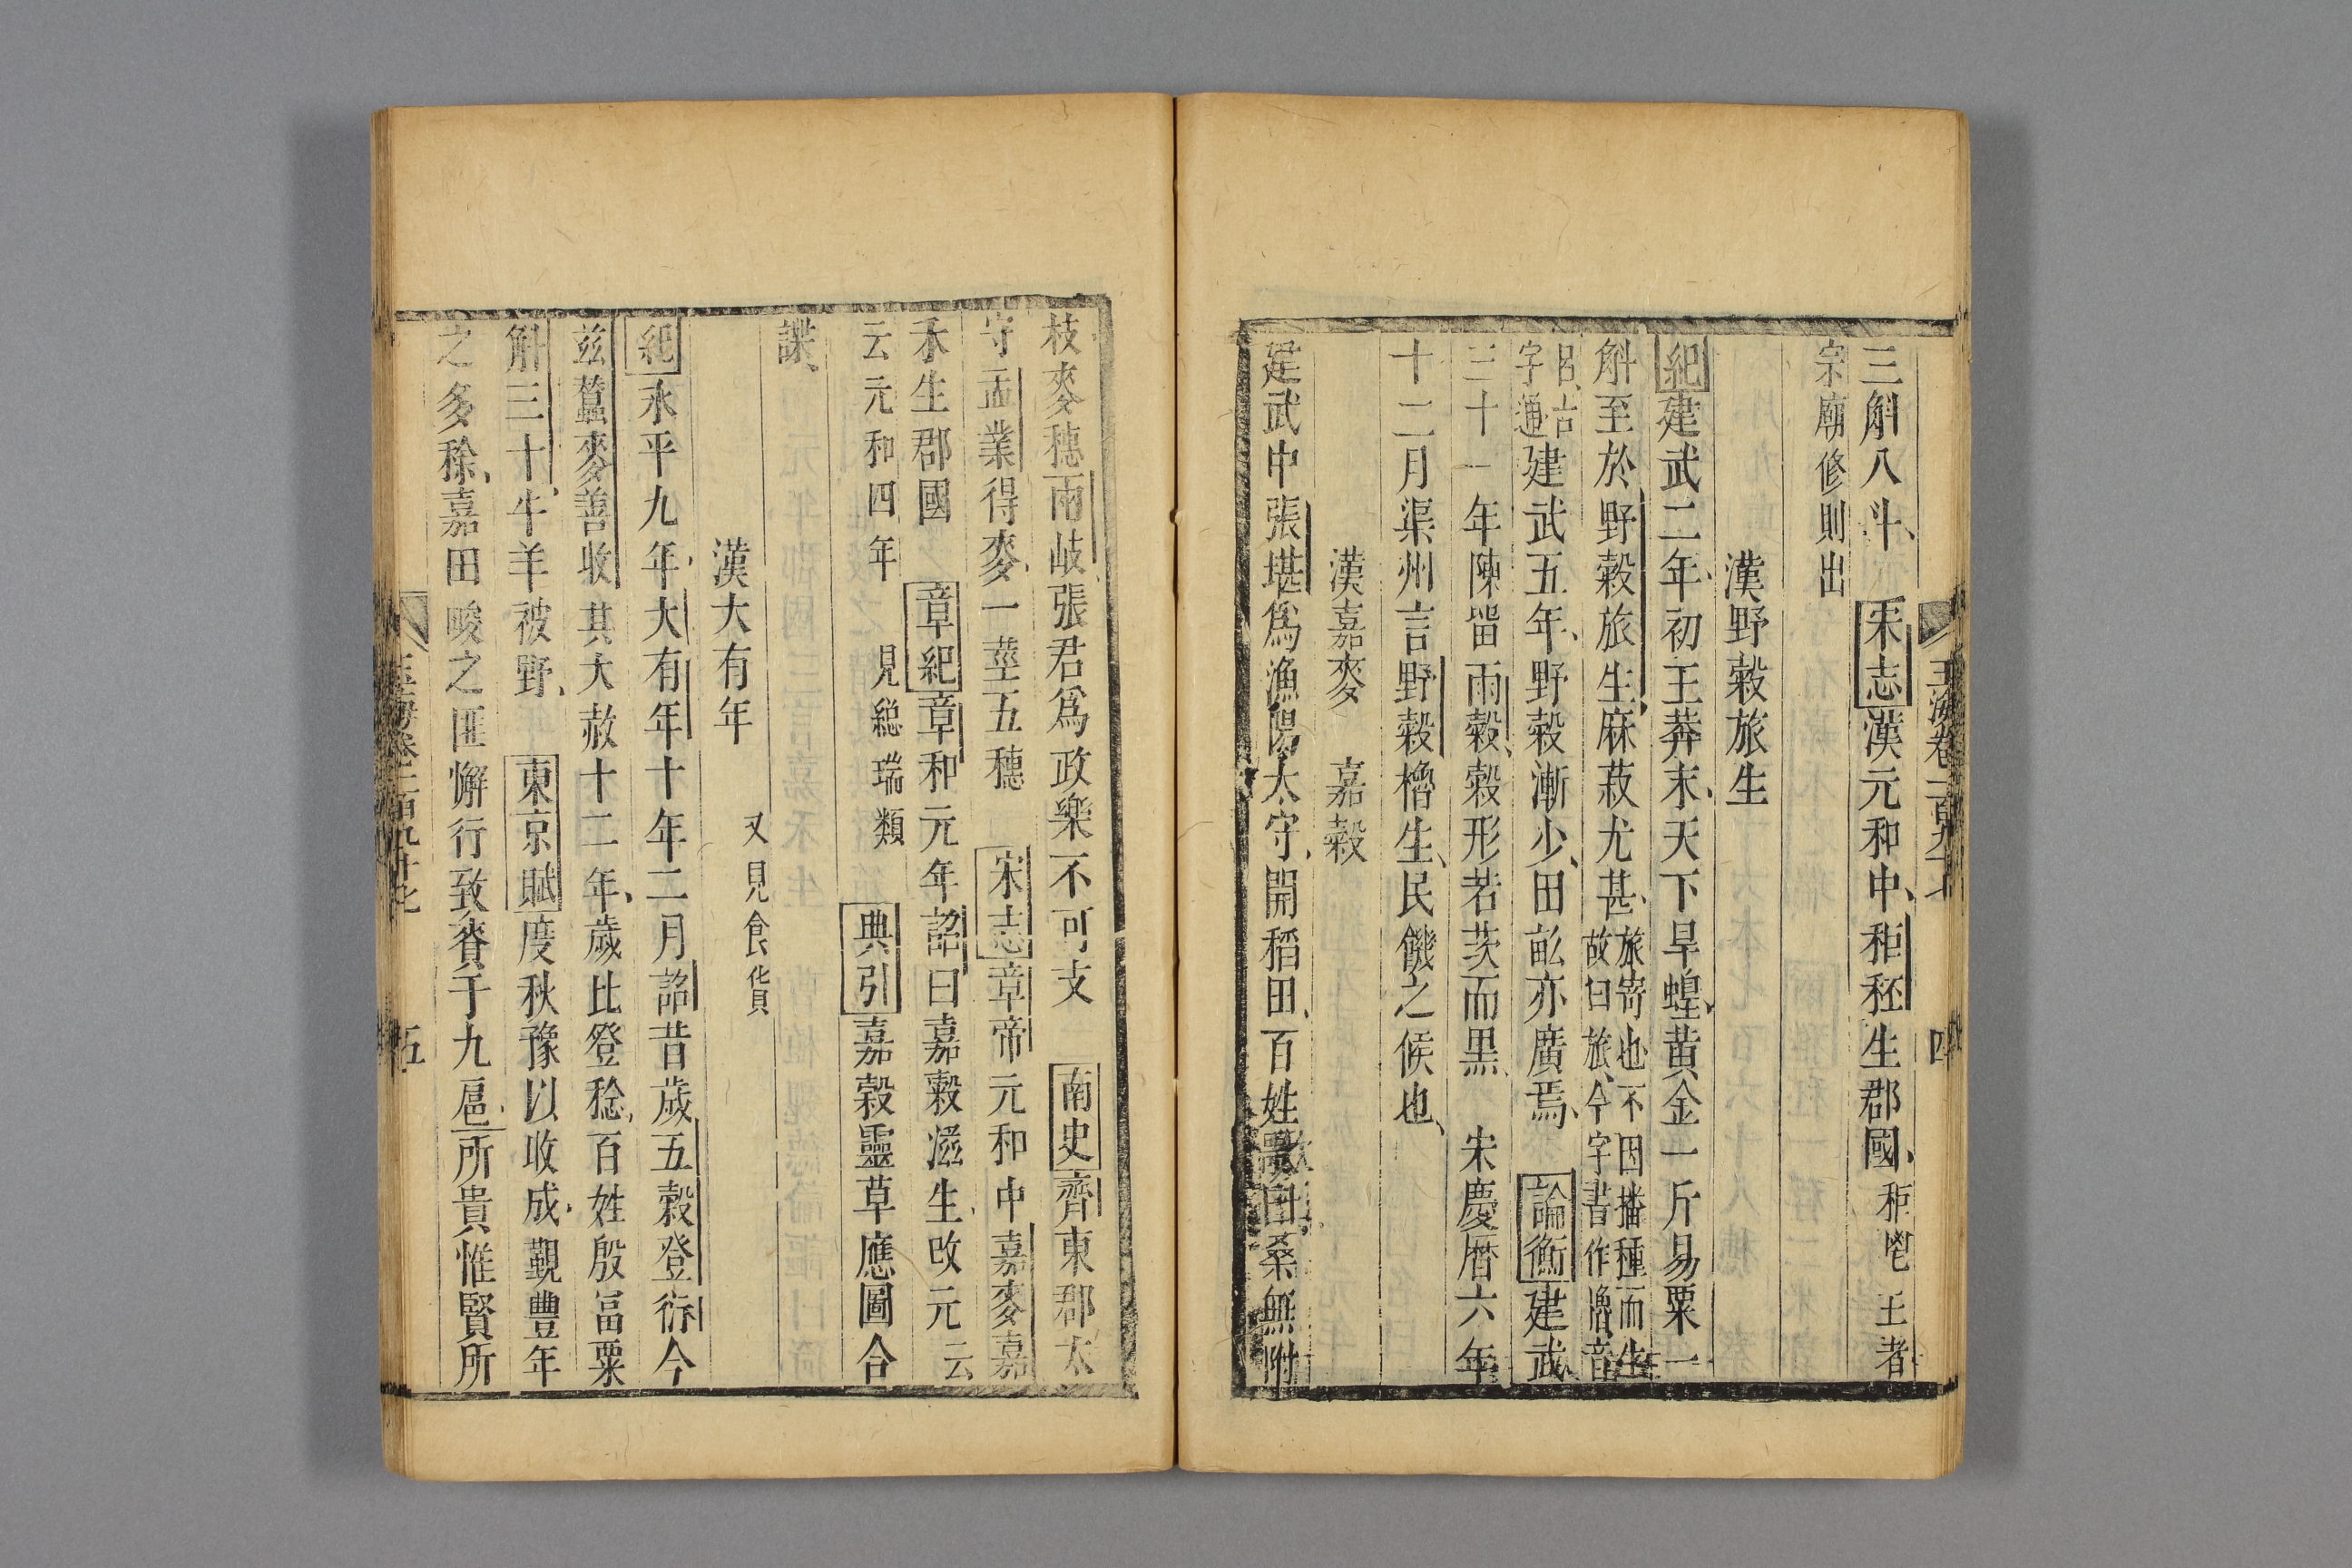 玉海卷一百九十七
四
三斛八斗宋志漢元和中秬秠生郡國秬鬯王者
宗廟修則出
漢野穀旅生
紀建武二年初王莽末天下旱蝗黄金一斤易粟一
斛至於野穀旅生麻菽尤甚旅寄也不因播種而生故曰旅今字書作穭音
呂古字通建武五年野穀漸少田畝亦廣焉論衡建武
三十一年陳留雨穀穀形若茨而黒宋慶曆六年
十二月渠州言野穀櫓生民饑之候也
漢嘉麥　嘉穀
建武中張堪爲漁陽太守開稻田百姓歌曰桑無附
枝麥穗兩岐張君爲政樂不可支南史齊東郡太
守孟業得麥一莖五穗宋志章帝元和中嘉麥嘉
禾生郡國章紀章和元年詔曰嘉穀滋生改元云
云元和四年見總瑞類典引嘉穀靈草應圖合
諜
漢大有年又見食貨
紀永平九年大有年十年二月詔昔歲五穀登衍今
兹蠶麥善收其大赦十二年歲比登稔百姓殷富粟
斛三十牛羊被野東京賦度秋豫以收成觀豐年
之多稌嘉田畯之匪懈行致賚于九扈所貴惟賢所
玉海卷一百九十七
五